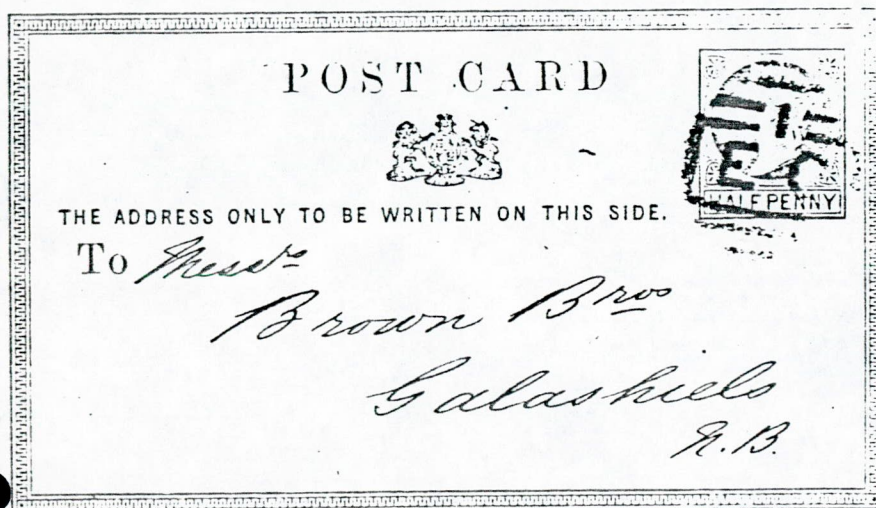 POST CARD
THE ADDRESS ONLY TO BE WRITTEN ON THIS SIDE.
HALFPENNY
To Messrs
Brown Bros
Galashiels
N.B.